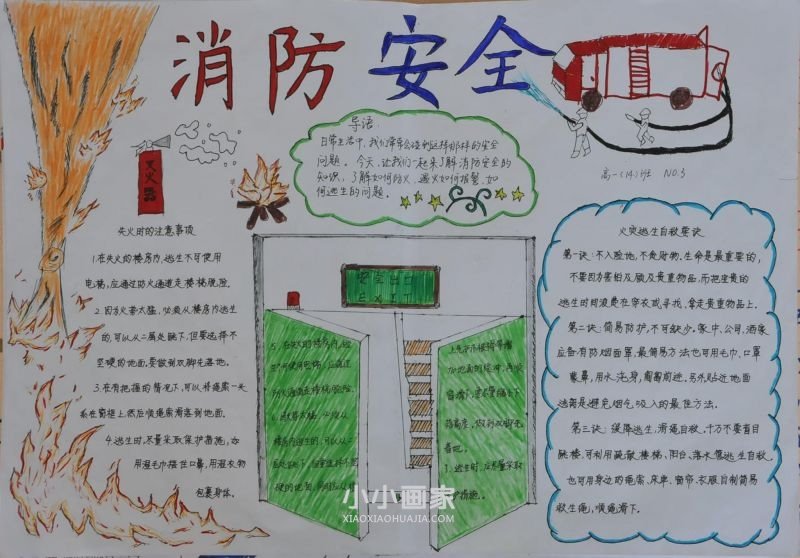 消防安全
导语:
日常生活中,我们常常会碰到这样那样的安全
问题。今天,让我们一起来了解消防安全的
知识,了解如何防火、遇火如何报警、如
何逃生的问题。
高一(14)班 NO.3
灭火器
失火时的注意事项
1.在失火的楼房内,逃生不可使用
电梯,应通过防火通道走楼梯脱险.
2.因为火势太猛,必须从楼房内逃生
的,可以从二层处跳下,但要选择不
坚硬的地面,要做到双脚先落地.
3.在有把握的情况下,可以将绳索一头
系在窗框上,然后顺绳索滑落到地面.
4.逃生时,尽量采取保护措施,如
用湿毛巾捂住口鼻,用湿衣物
包裹身体.
安全出口
EXIT
火灾逃生自救要诀
第一诀:不入险地,不贪财物.生命是最重要的,
不要因为害怕及顾及贵重物品,而把宝贵的
逃生时间浪费在穿衣或寻找,拿走贵重物品上.
第二诀:简易防护,不可缺少.家中,公司,酒家
应备有防烟面罩,最简易方法也可用毛巾、口罩
蒙鼻,用水浇身,匍匐前进.另外贴近地面
逃离是避免烟气吸入的最佳方法.
第三诀:缓降逃生,滑绳自救.千万不要盲目
跳楼,可利用疏散楼梯、阳台、落水管逃生自救.
也可用身边的绳索、床单、窗帘、衣服自制简易
救生绳,顺绳滑下.
小小画家
XIAOXIAOHUAJIA.COM